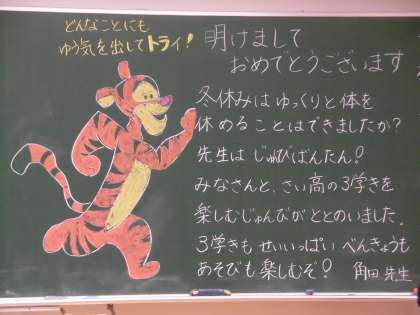 どんなことにも
ゆう気を出してトライ!
明けまして
おめでとうございます
冬休みは ゆっくりと体を
休めることはできましたか?
先生は じゅんびばんたん!
みなさんと、さい高の3学きを
楽しむじゅんびがととのいました。
3学きも せいいっぱい べんきょうも
あそびも楽しむぞ! 角田 先生